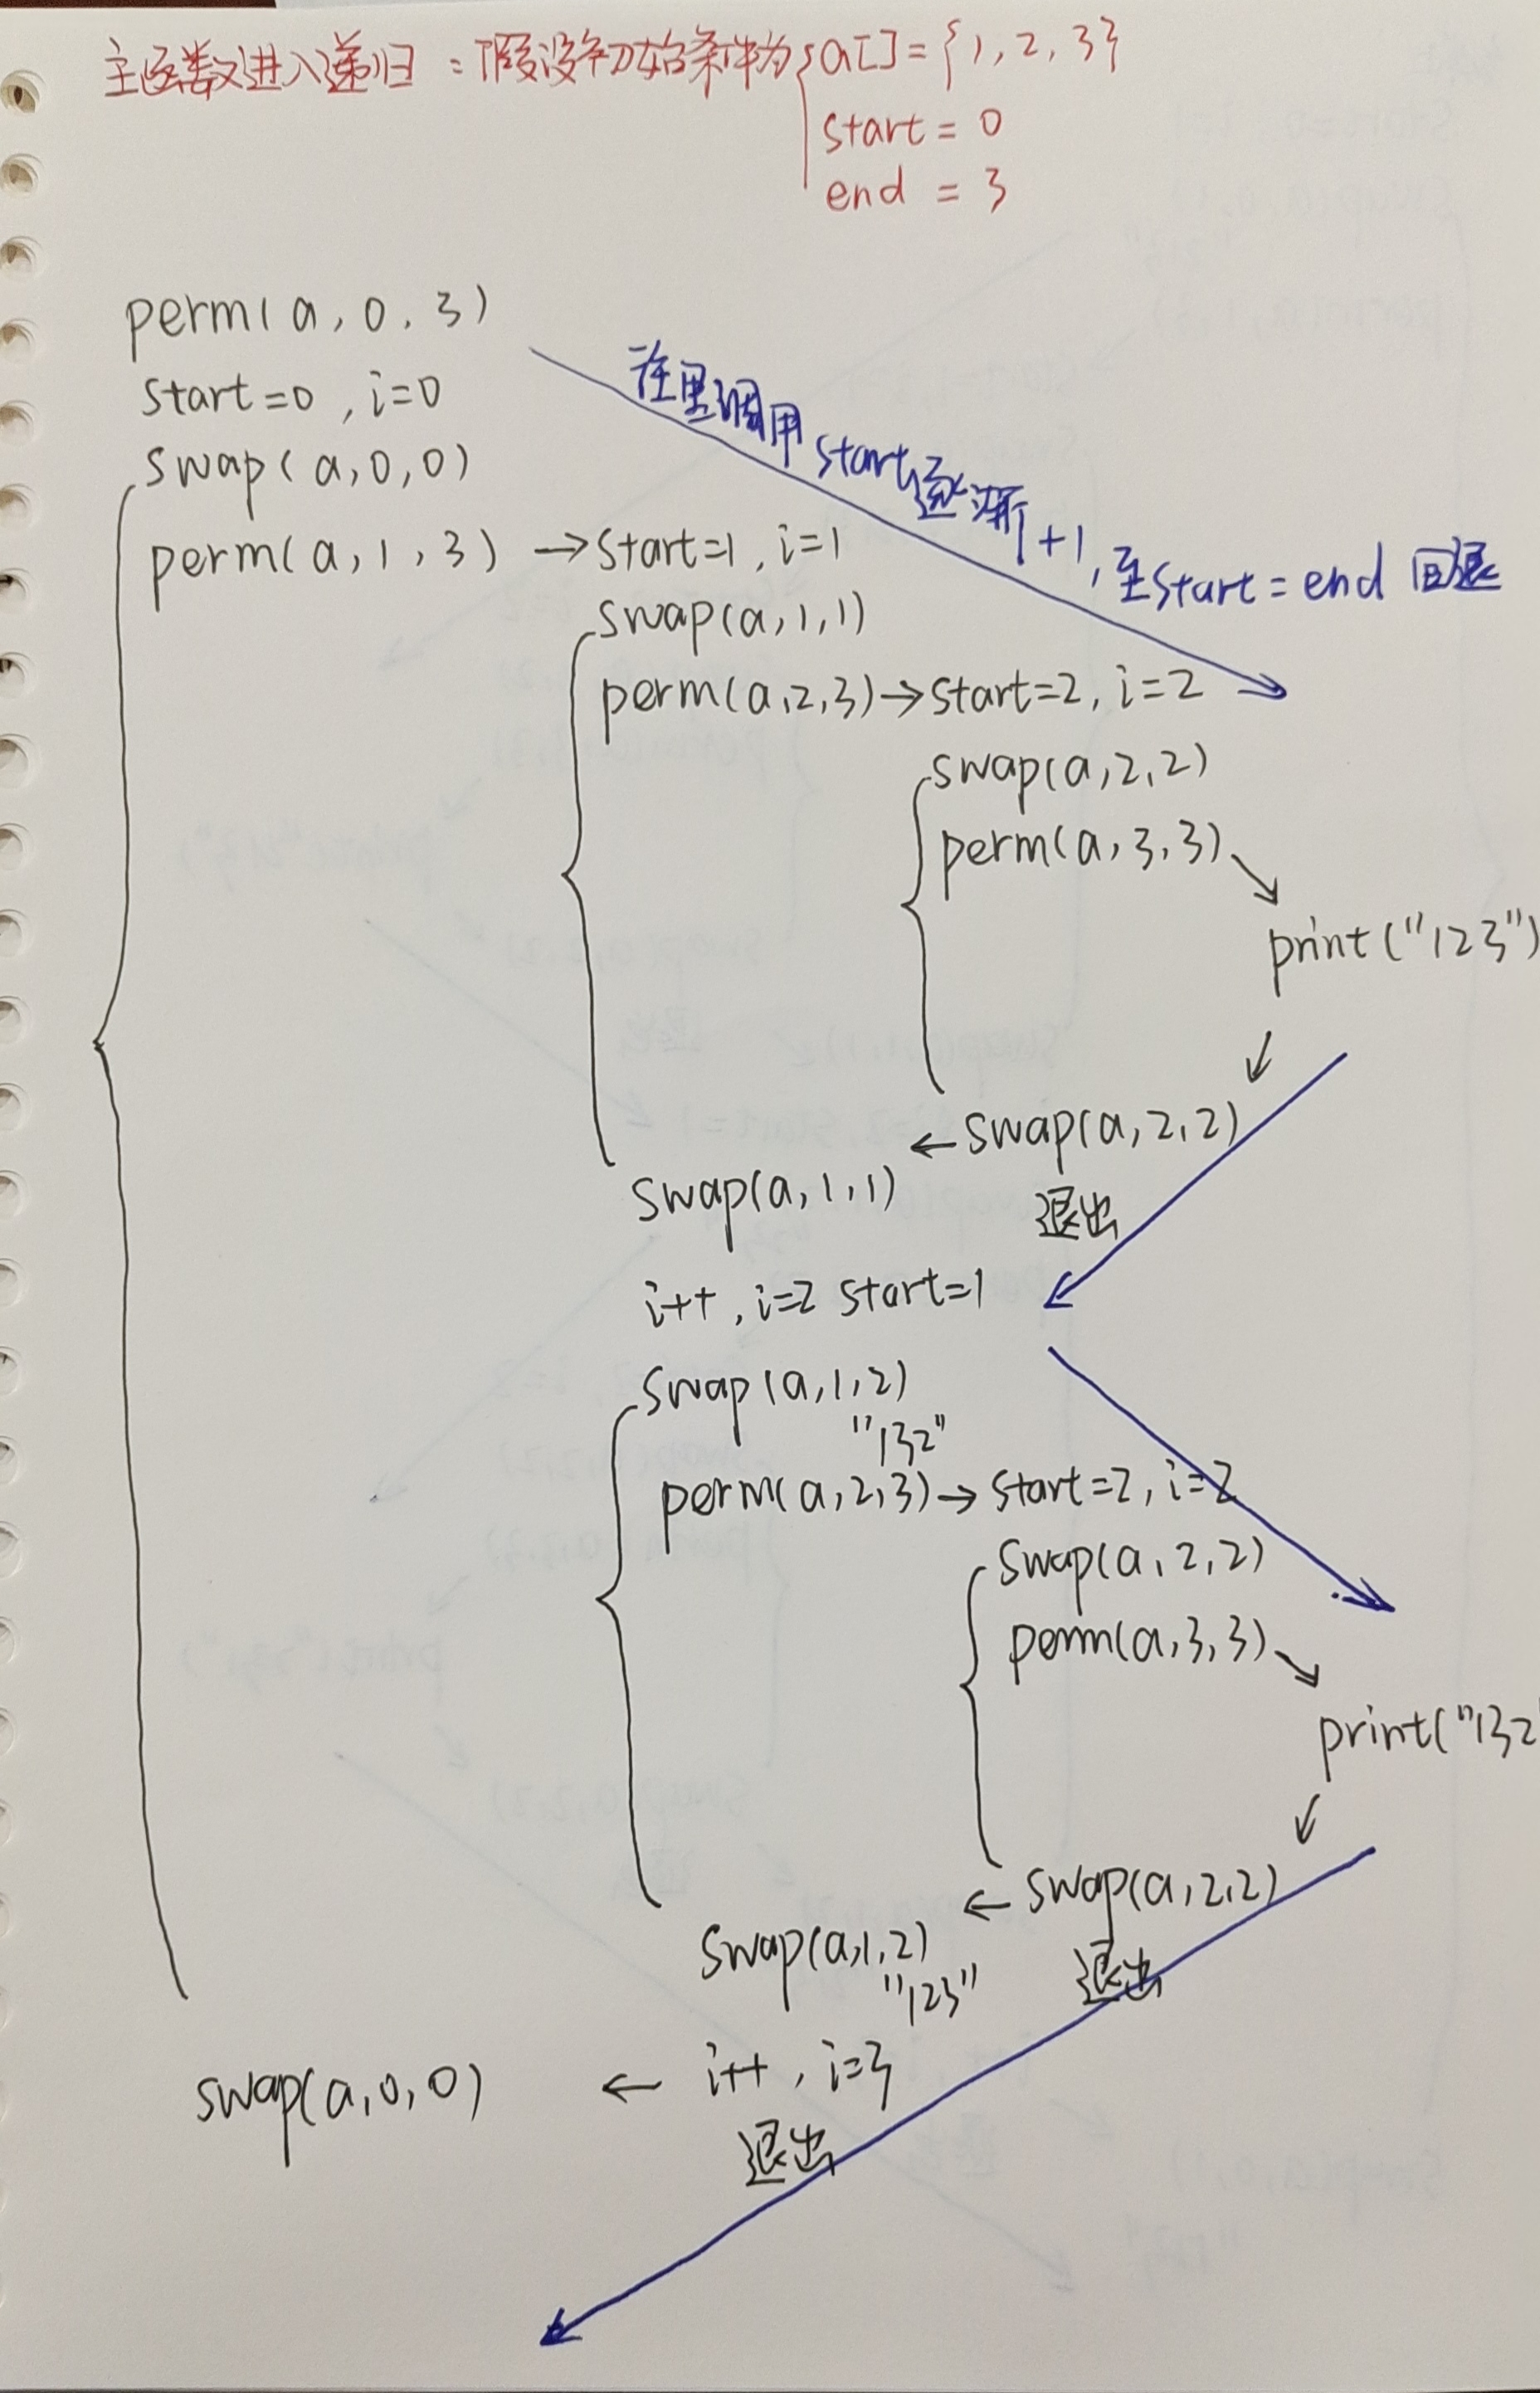 主函数进入递归：假设初始条件为{a[]={1,2,3}
start=0
end=3
perm(a,0,3)
start=0,i=0
swap(a,0,0)
往里调用start逐渐+1,至start=end 回退
perm(a,1,3)→start=1,i=1
swap(a,1,1)
perm(a,2,3)→start=2,i=2
swap(a,2,2)
perm(a,3,3)↘
print("123")
↙
←swap(a,2,2)
swap(a,1,1)
退出
i++,i=2 start=1
swap(a,1,2)
"132"
perm(a,2,3)→start=2,i=2
swap(a,2,2)
perm(a,3,3)↘
print("132
↙
←swap(a,2,2)
swap(a,1,2)
退出
"123"
swap(a,0,0) ← i++,i=3
退出